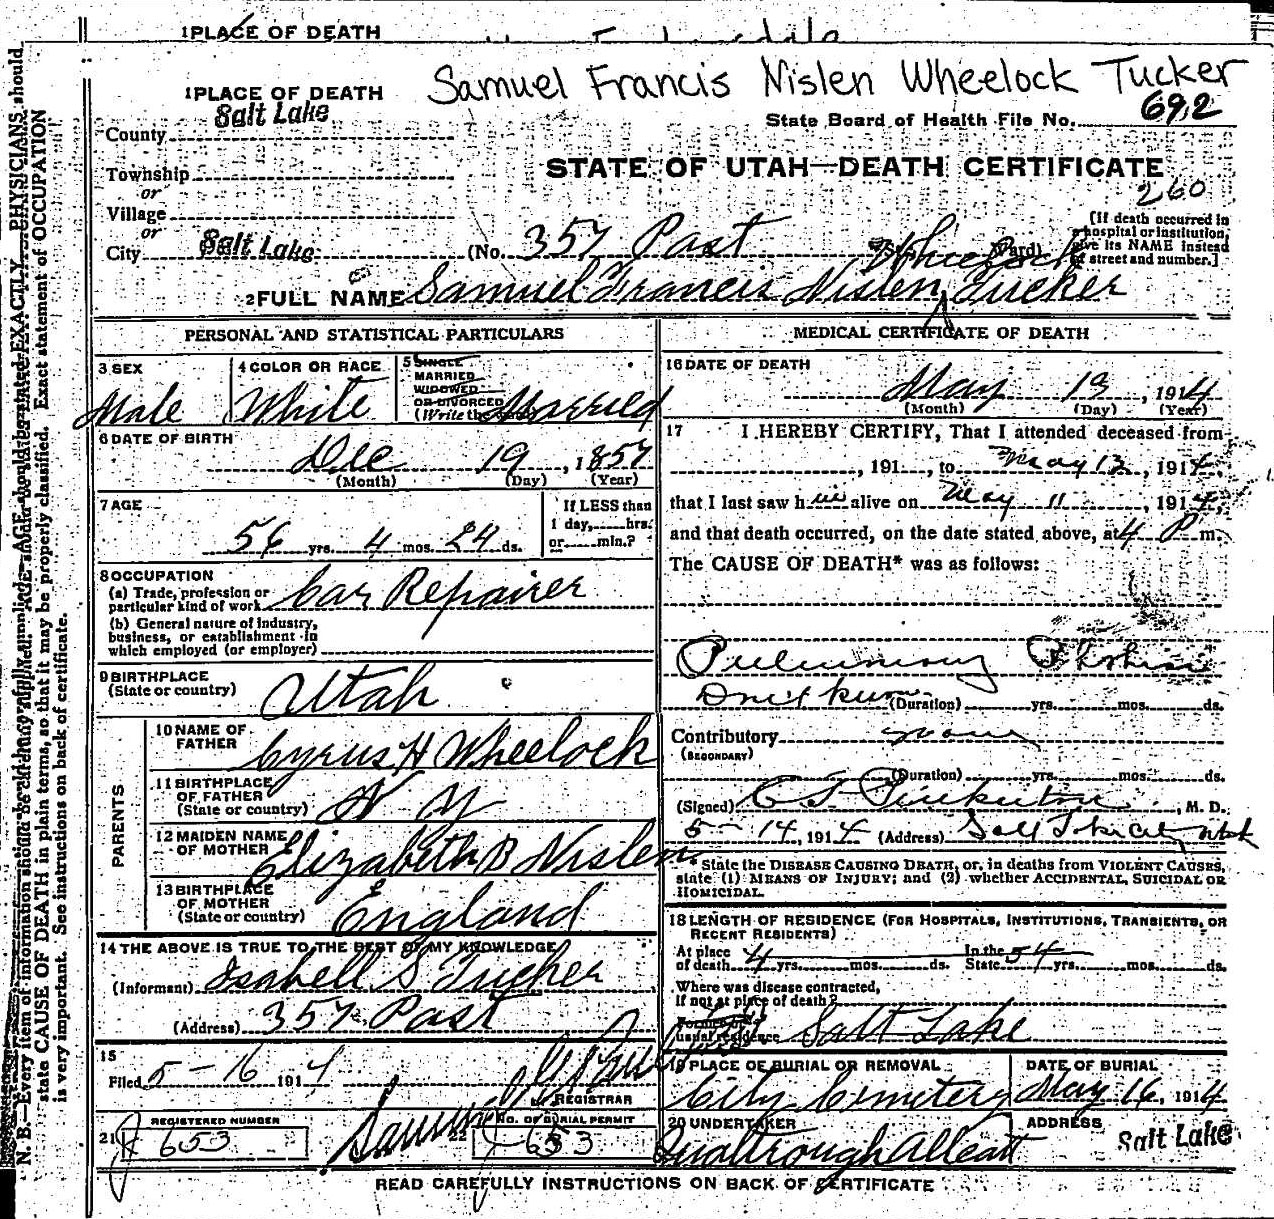 1 PLACE OF DEATH
Samuel Francis Nislen Wheelock Tucker
1 PLACE OF DEATH
County Salt Lake
State Board of Health File No. 692
Township
or
Village
or
City Salt Lake
STATE OF UTAH—DEATH CERTIFICATE
260
(No. 357 Post St. Ward)
[If death occurred in a hospital or institution, give its NAME instead of street and number.]
Wheelock
2 FULL NAME Samuel Francis Nislen Tucker
PERSONAL AND STATISTICAL PARTICULARS
3 SEX
Male
4 COLOR OR RACE
White
5 SINGLE
MARRIED
WIDOWED
OR DIVORCED
(Write the Married
6 DATE OF BIRTH
Dec 19, 1857
(Month) (Day) (Year)
7 AGE
56 yrs. 4 mos. 24 ds.
If LESS than
1 day, hrs.
or min.?
8 OCCUPATION
(a) Trade, profession or
particular kind of work Car Repairer
(b) General nature of industry,
business, or establishment in
which employed (or employer)
9 BIRTHPLACE
(State or country) Utah
PARENTS
10 NAME OF
FATHER Cyrus H Wheelock
11 BIRTHPLACE
OF FATHER
(State or country) N Y
12 MAIDEN NAME
OF MOTHER Elizabeth B Nislen
13 BIRTHPLACE
OF MOTHER
(State or country) England
14 THE ABOVE IS TRUE TO THE BEST OF MY KNOWLEDGE
(Informant) Isabell S Tucker
(Address) 357 Post
15
Filed 5-16 1914
REGISTRAR
REGISTERED NUMBER
21 653
NO. OF BURIAL PERMIT
22 653
MEDICAL CERTIFICATE OF DEATH
16 DATE OF DEATH
May 13, 1914
(Month) (Day) (Year)
17 I HEREBY CERTIFY, That I attended deceased from
, 191 , to May 13, 1914,
that I last saw him alive on May 11, 1914,
and that death occurred, on the date stated above, at 4 P m.
The CAUSE OF DEATH* was as follows:
Pulmonary Phthisis
Don't know (Duration) yrs. mos. ds.
Contributory none
(SECONDARY)
(Duration) yrs. mos. ds.
(Signed) C F Pinkerton, M. D.
5-14, 1914 (Address) Salt Lake City Utah
State the DISEASE CAUSING DEATH, or, in deaths from VIOLENT CAUSES,
state (1) MEANS OF INJURY; and (2) whether ACCIDENTAL, SUICIDAL OR
HOMICIDAL.
18 LENGTH OF RESIDENCE (FOR HOSPITALS, INSTITUTIONS, TRANSIENTS, OR
RECENT RESIDENTS)
At place
of death 4 yrs. mos. ds. In the State 54 yrs. mos. ds.
Where was disease contracted,
if not at place of death?
Former or
usual residence Salt Lake
19 PLACE OF BURIAL OR REMOVAL
City Cemetery
DATE OF BURIAL
May 16, 1914
20 UNDERTAKER
ADDRESS
Salt Lake
READ CAREFULLY INSTRUCTIONS ON BACK OF CERTIFICATE
N. B.—Every item of information should be carefully supplied. AGE should be stated EXACTLY. PHYSICIANS should
state CAUSE OF DEATH in plain terms, so that it may be properly classified. Exact statement of OCCUPATION
is very important. See instructions on back of certificate.